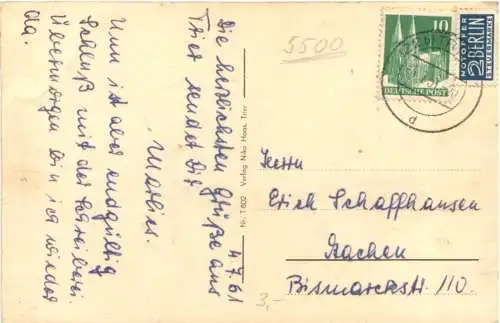 4.7.61
Die herzlichsten Grüße aus
Trier sendet Dir
Marlies.
Nun ist aber endgültig
Schluß mit der Schreiberei.
Übermorgen bin ich wieder
da.
Nr. T 802 Verlag Niko Haas, Trier
5500
10
DEUTSCHE POST
NOTOPFER
2 BERLIN
STEUERMARKE
d
Herrn
Erich Schaffhausen
Aachen
Bismarckstr. 110.
3,-